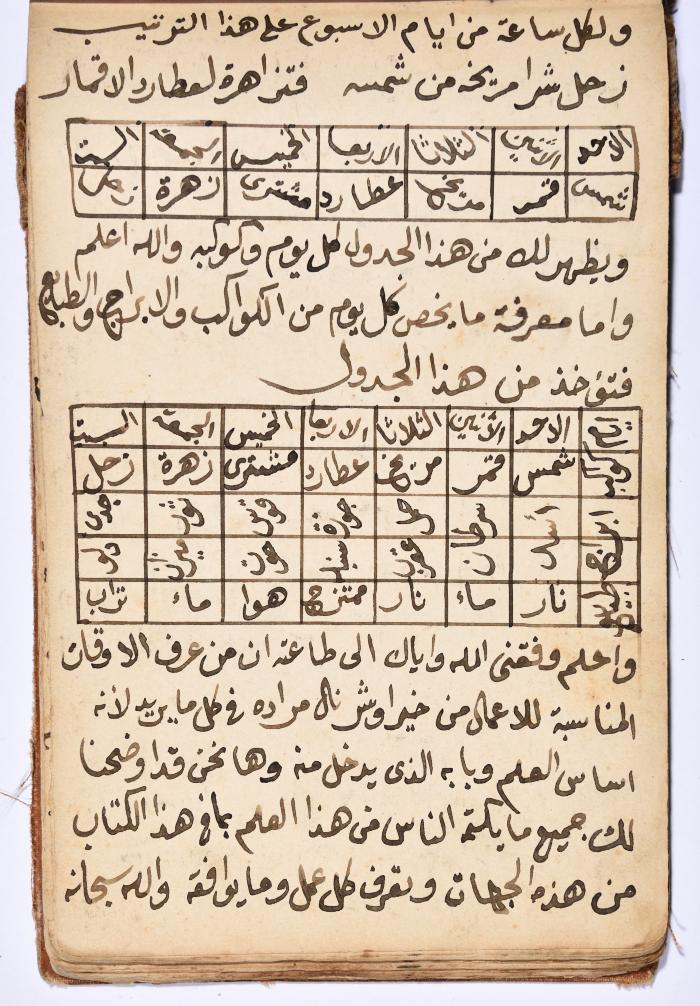 ولكل ساعة من ايام الاسبوع على هذا الترتيب
زحل شرا مريخه من شمسه فتزاهرة لعطارد الاقمار
الاحد الاثنين الثلاثا الاربعا الخميس الجمعة السبت
شمس قمر مريخ عطارد مشترى زهرة زحل
ويظهر لك من هذا الجدول كل يوم وكوكبه والله اعلم
واما معرفة ما يخص كل يوم من الكواكب والابراج والطبايع
فتؤخذ من هذا الجدول
ايام الاحد الاثنين الثلاثا الاربعا الخميس الجمعة السبت
كواكب شمس قمر مريخ عطارد مشترى زهرة زحل
ابراج أسد سرطان حمل جوزة قوس ثور جدى
عقرب سنبله حوت ميزان دلو
طبايع نار ماء نار ممتزج هوا ماء تراب
واعلم وفقنى الله واياك الى طاعته ان من عرف الاوقات
المناسبة للاعمال من خير اوشر نال مراده فى كل ما يريد لانه
اساس العلم وبابه الذى يدخل منه وها نحن قد اوضحنا
لك جميع ما يكتمه الناس من هذا العلم بما فى هذا الكتاب
من هذه الجهات وتعرف كل عمل وما يوافقه والله سبحانه